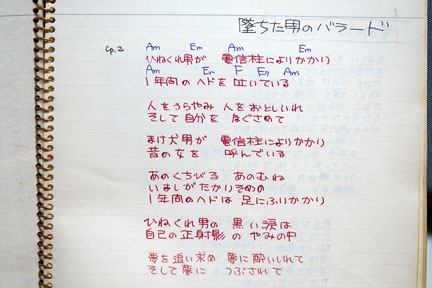 墜ちた男のバラード
Cp.2
Am Em Am Em
ひねくれ男が 電信柱によりかかり
Am Em F Em Am
1年間のヘドを 吐いている
人をうらやみ 人をおとしいれ
そして 自分を なぐさめて
まけ犬男が 電信柱によりかかり
昔の女を 呼んでいる
あのくちびる あのむね
いましがたかりそめの
1年間のヘドは 足にふりかかり
ひねくれ男の 黒い涙は
自己の正射影の やみの中
夢を追い求め 夢に酔いしれて
そして夢に つぶされて